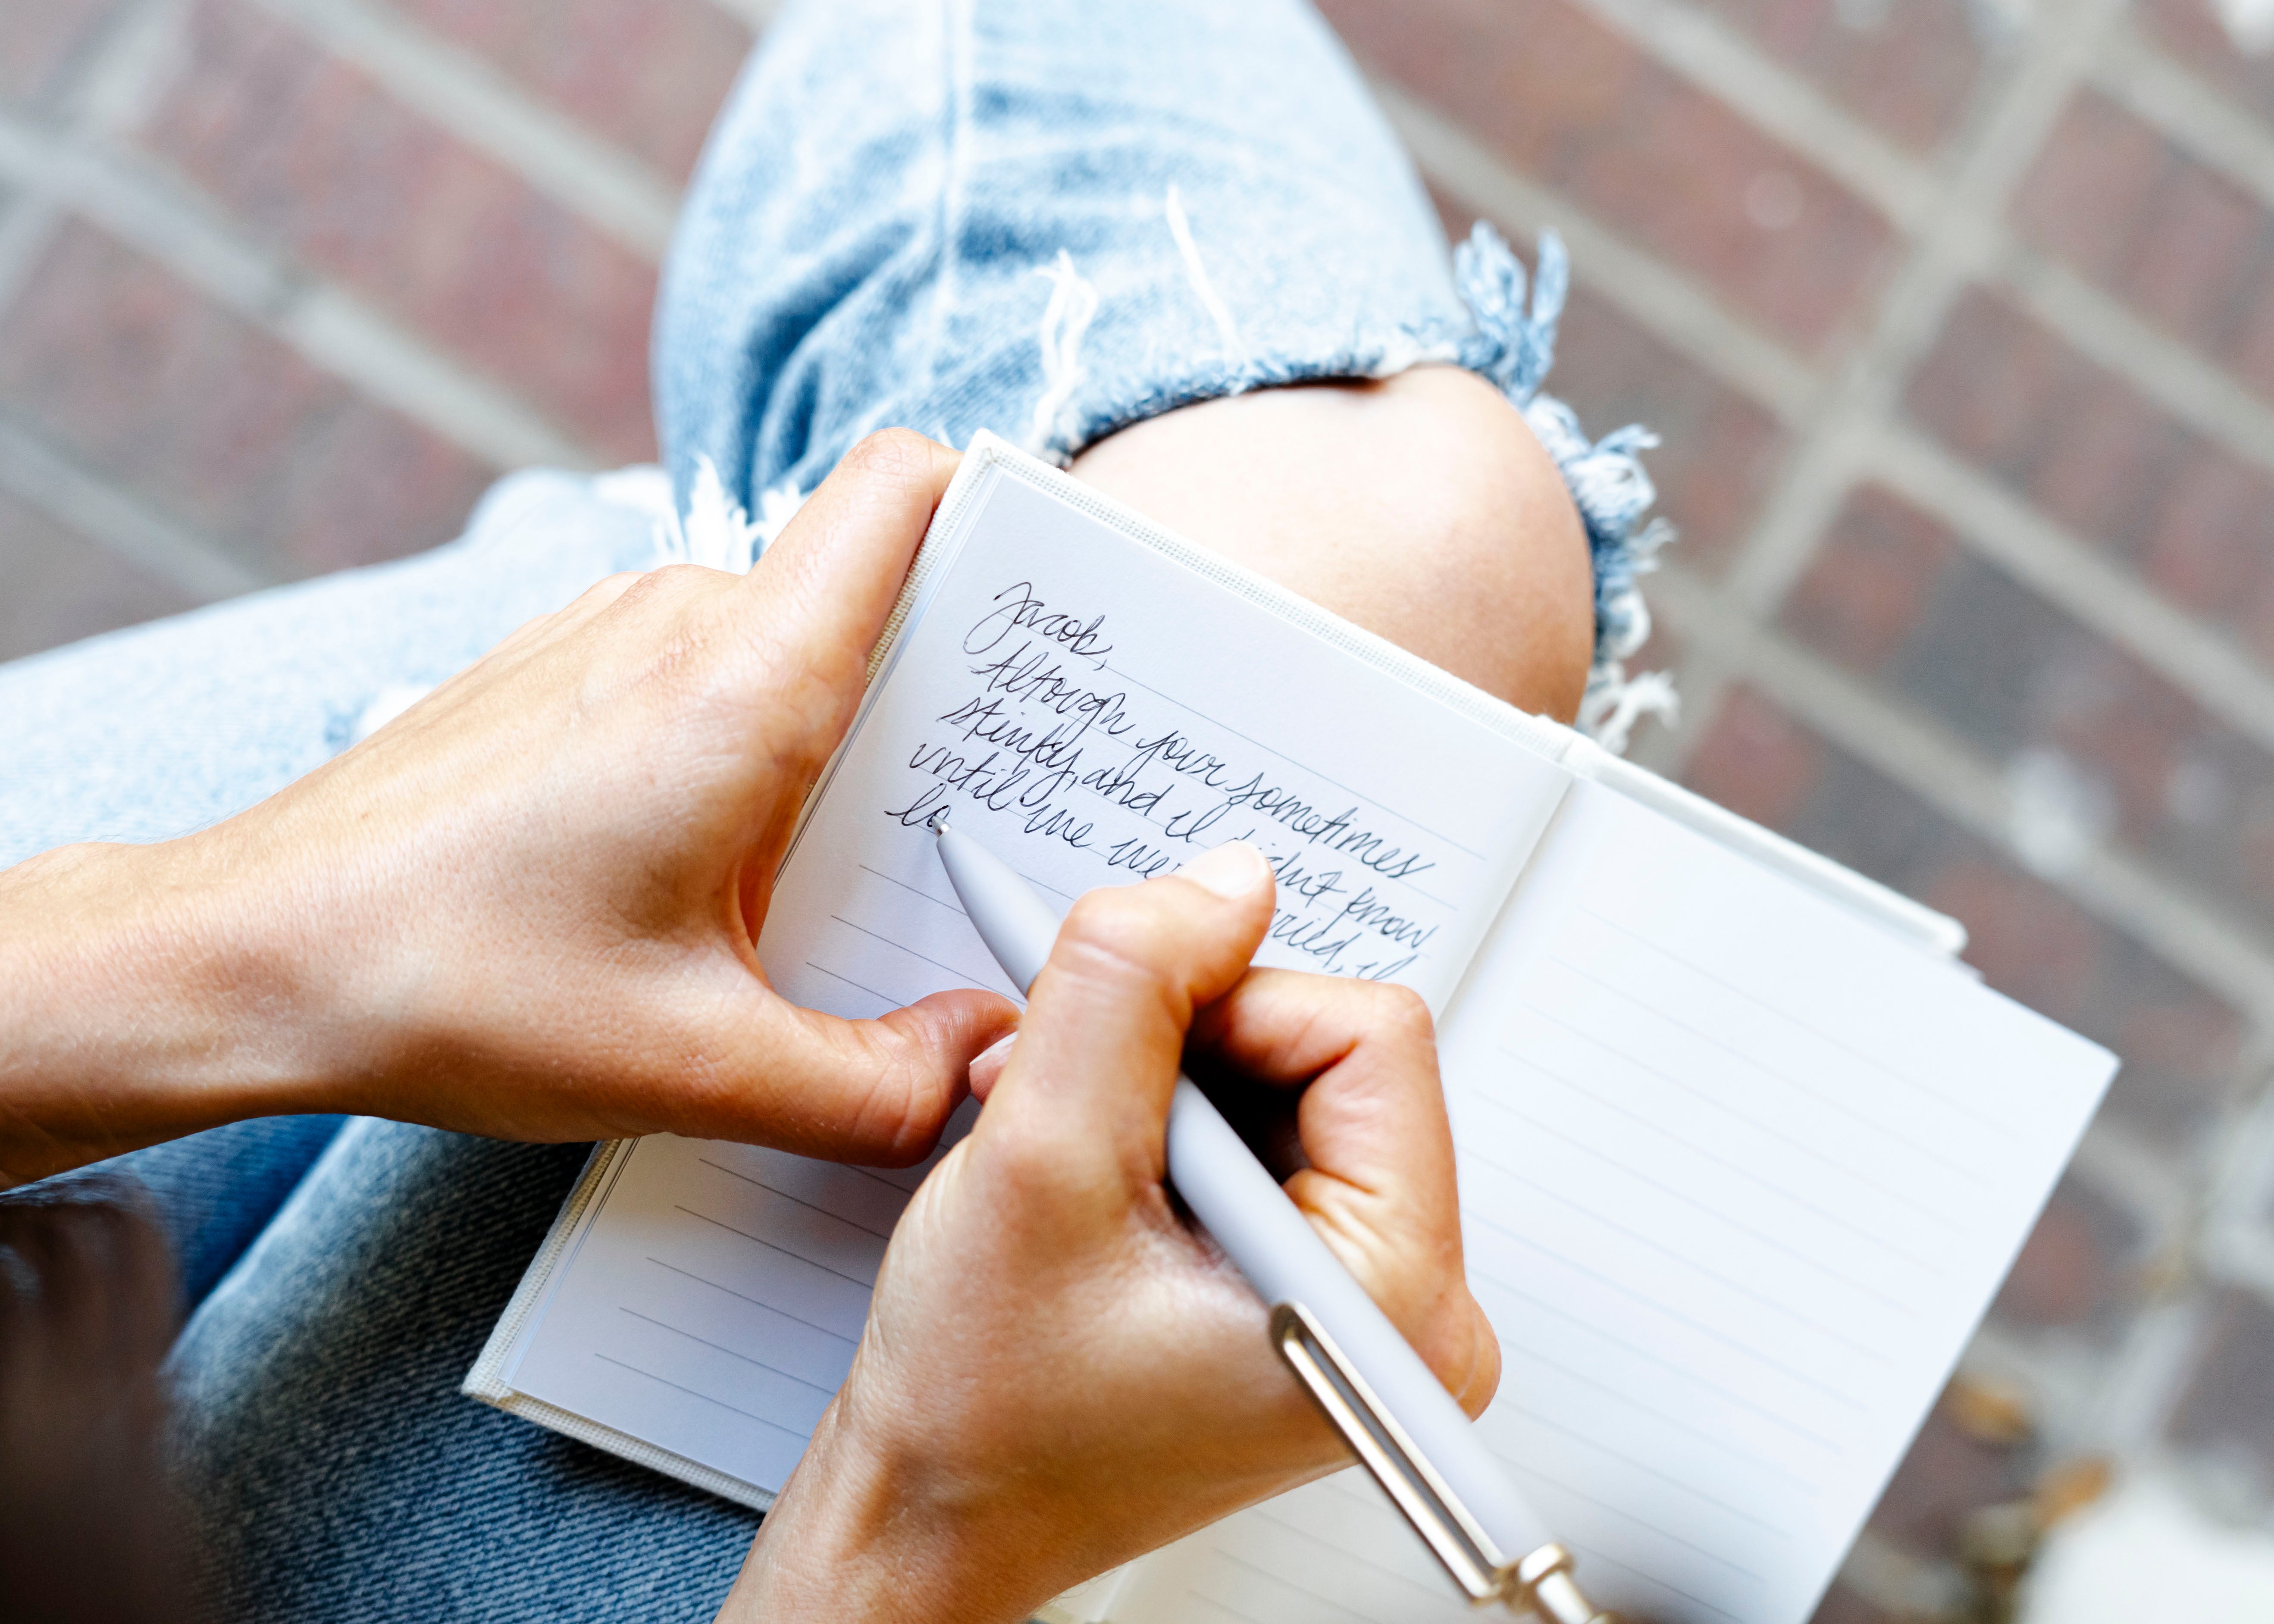 Jacob,
Altough your sometimes
stinky, and I didnt know
until we were married, I
lo